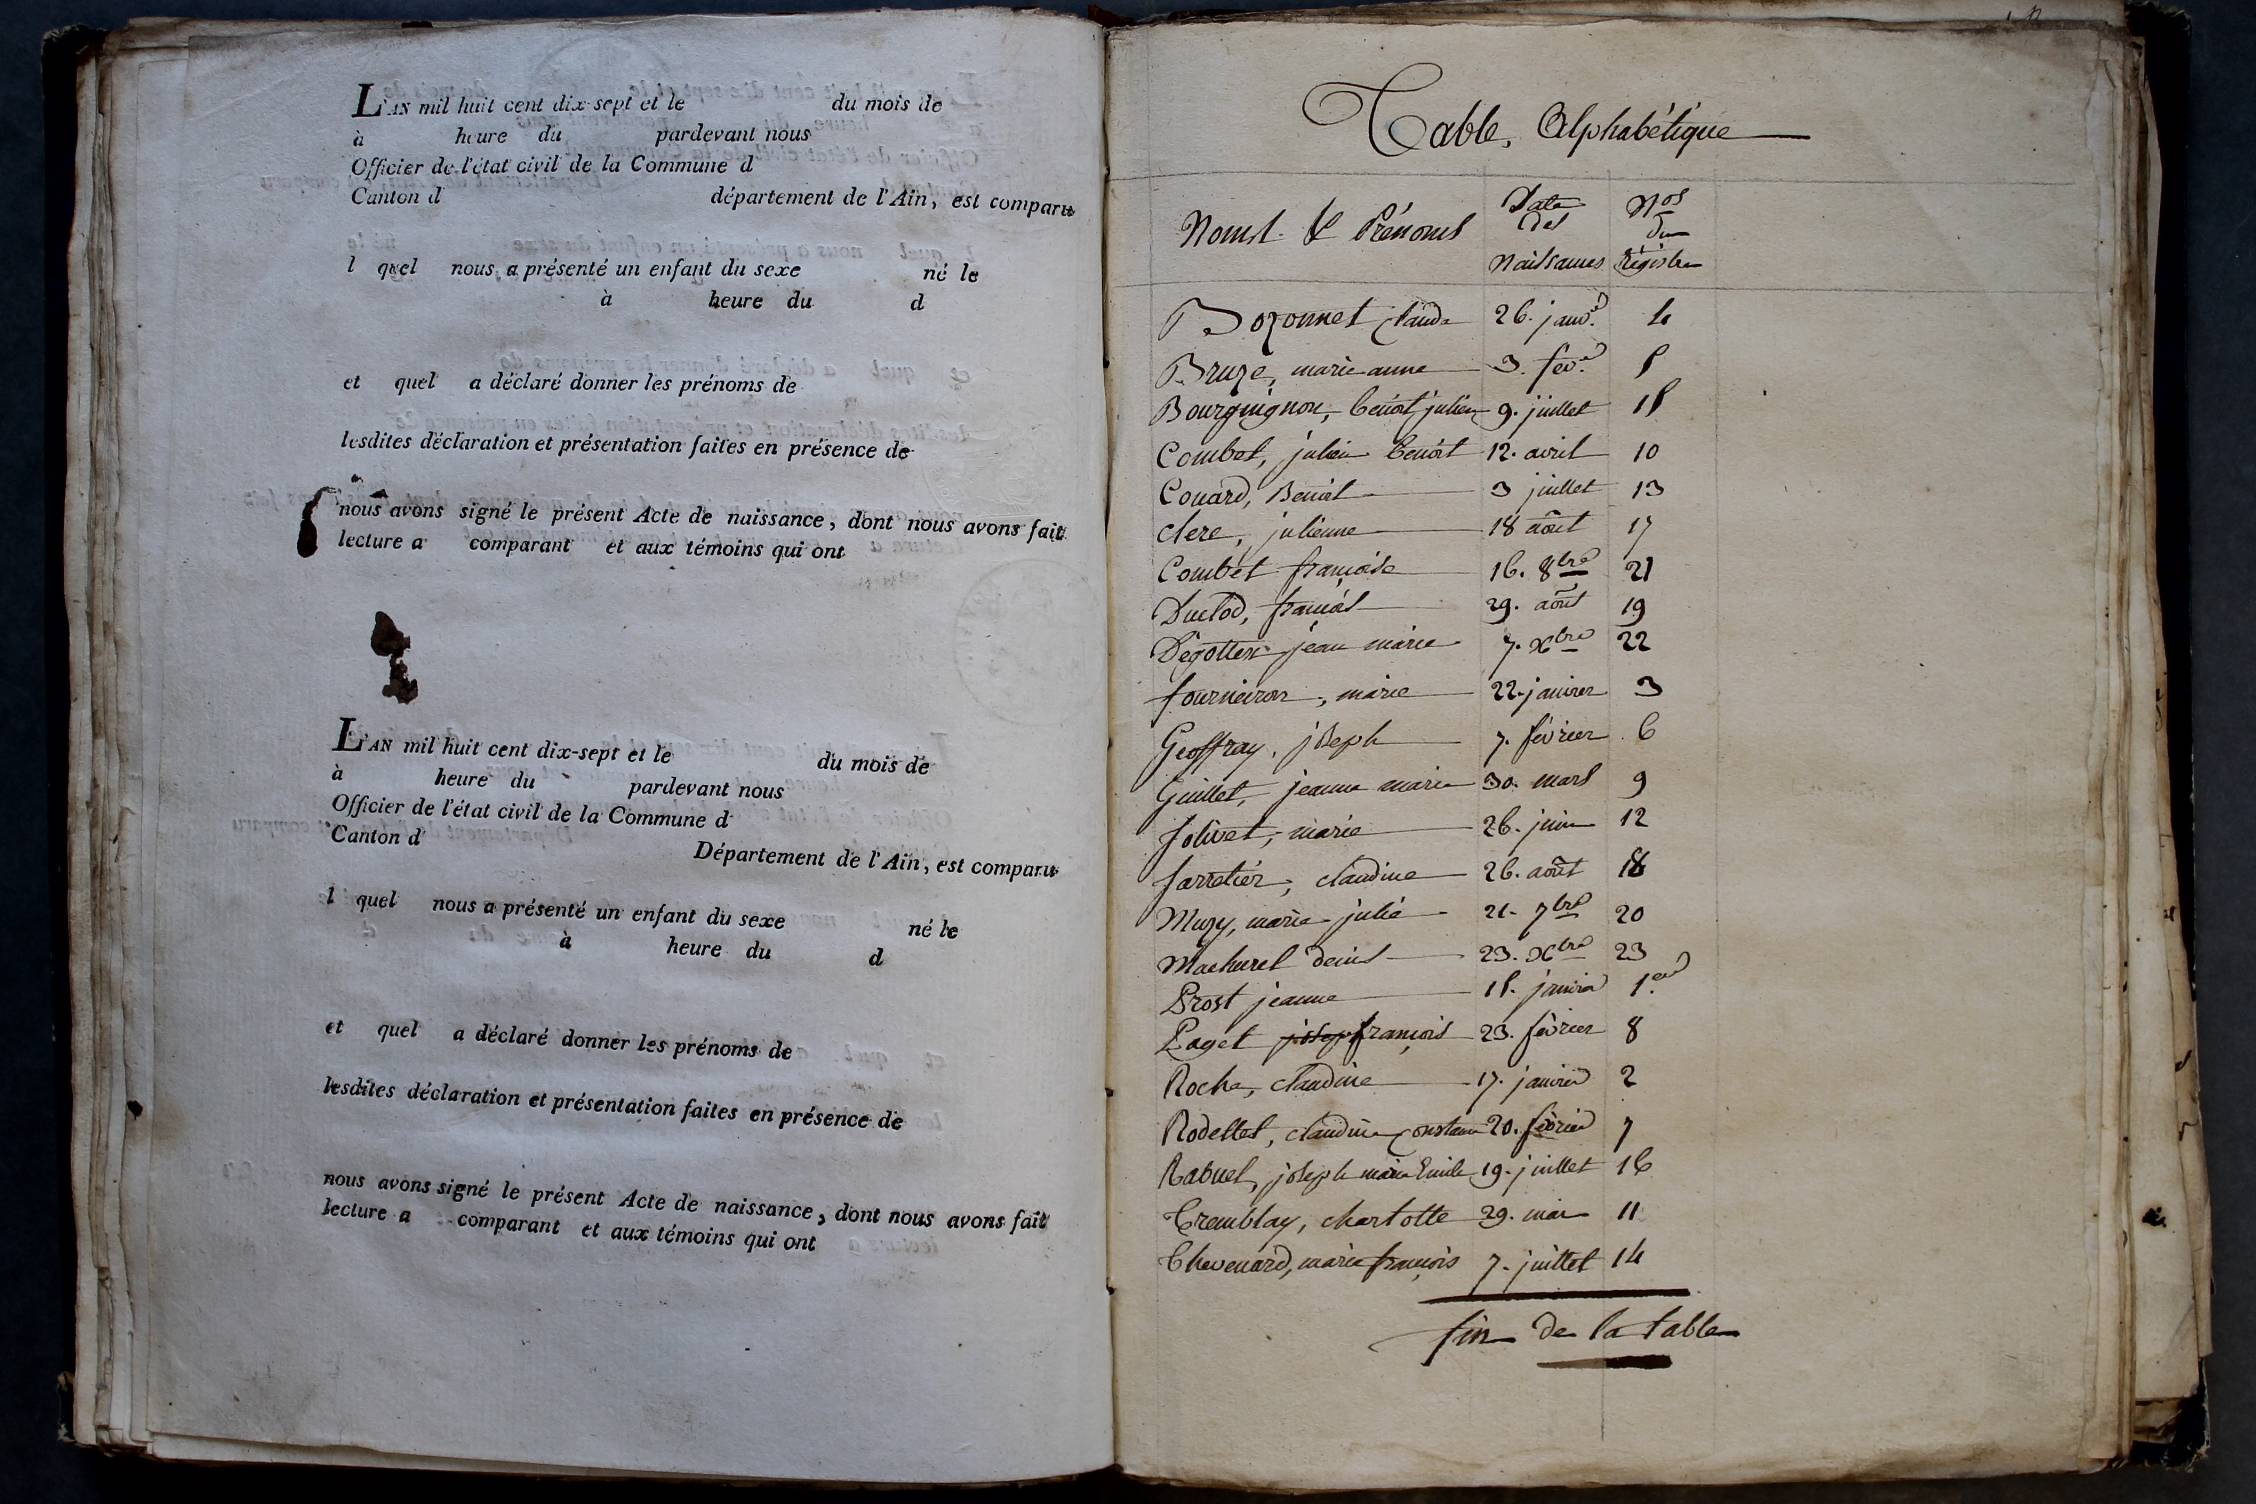 L'AN mil huit cent dix-sept et le du mois de
à heure du pardevant nous
Officier de l'état civil de la Commune d
Canton d département de l'Ain, est comparu
l quel nous a présenté un enfant du sexe né le
à heure du d
et quel a déclaré donner les prénoms de
lesdites déclaration et présentation faites en présence de
nous avons signé le présent Acte de naissance, dont nous avons fait
lecture a comparant et aux témoins qui ont
L'AN mil huit cent dix-sept et le du mois de
à heure du pardevant nous
Officier de l'état civil de la Commune d
Canton d Département de l'Ain, est comparu
l quel nous a présenté un enfant du sexe né le
à heure du d
et quel a déclaré donner les prénoms de
lesdites déclaration et présentation faites en présence de
nous avons signé le présent Acte de naissance, dont nous avons fait
lecture a comparant et aux témoins qui ont
Table Alphabétique
Noms & Prénoms Date des Naissances Nos du Régistre
Bozonnet Claude 26. janv.r 4
Bruze, marie anne 3. fév.r 5
Bourguignon, Benoit julien 9. juillet 15
Combet, julien Benoit 12. avril 10
Couard, Benoit 3 juillet 13
Clere, julienne 18 août 17
Combet françoise 16. 8bre 21
Duclos, françois 29. août 19
Dégottex jean marie 7. Xbre 22
fourneiron, marie 22. janvier 3
Geoffray, joseph 7. février 6
Guillet, jeanne marie 30. mars 9
Jolivet, marie 26. juin 12
Jarretier, claudine 26. août 18
Muzy, marie julie 21. 7bre 20
Machurel Denis 23. Xbre 23
Prost jeanne 15. janvier 1er
Paget joseph françois 23. février 8
Roche, claudine 17. janvier 2
Rodellet, claudine Constance 20. février 7
Rabuel, joseph marie Emile 19. juillet 16
Tremblay, charlotte 29. mai 11
Thevenard, marie françois 7. juillet 14
fin de la table